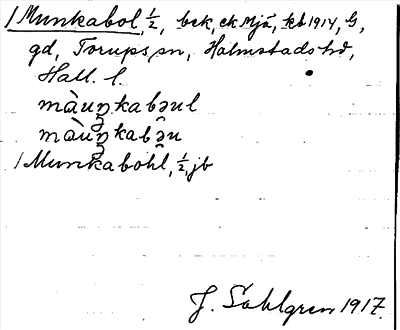 / Munkabol, ½, bck, ck Mjä, kb 1914, G,
gd, Torups sn, Halmstads hd,
Hall. l.
màuŋkabəul
màuŋkabəu
/ Munkabohl, ½, jb
J. Sahlgren 1917.